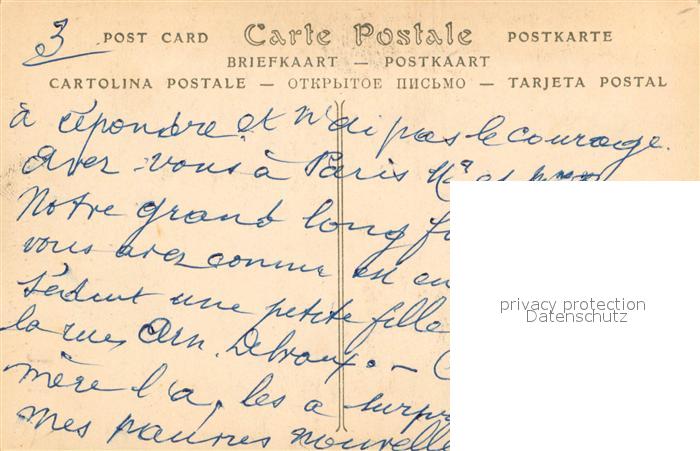 3
POST CARD Carte Postale POSTKARTE
BRIEFKAART — POSTKAART
CARTOLINA POSTALE — ОТКРЫТОЕ ПИСЬМО — TARJETA POSTAL
à répondre et n'ai pas le courage.
Avez-vous à Paris
Notre grand long
vous avez connu en
séduit une petite fille
la rue Arn.
mère l'a, les a
mes pauvres nouvelle
privacy protection
Datenschutz